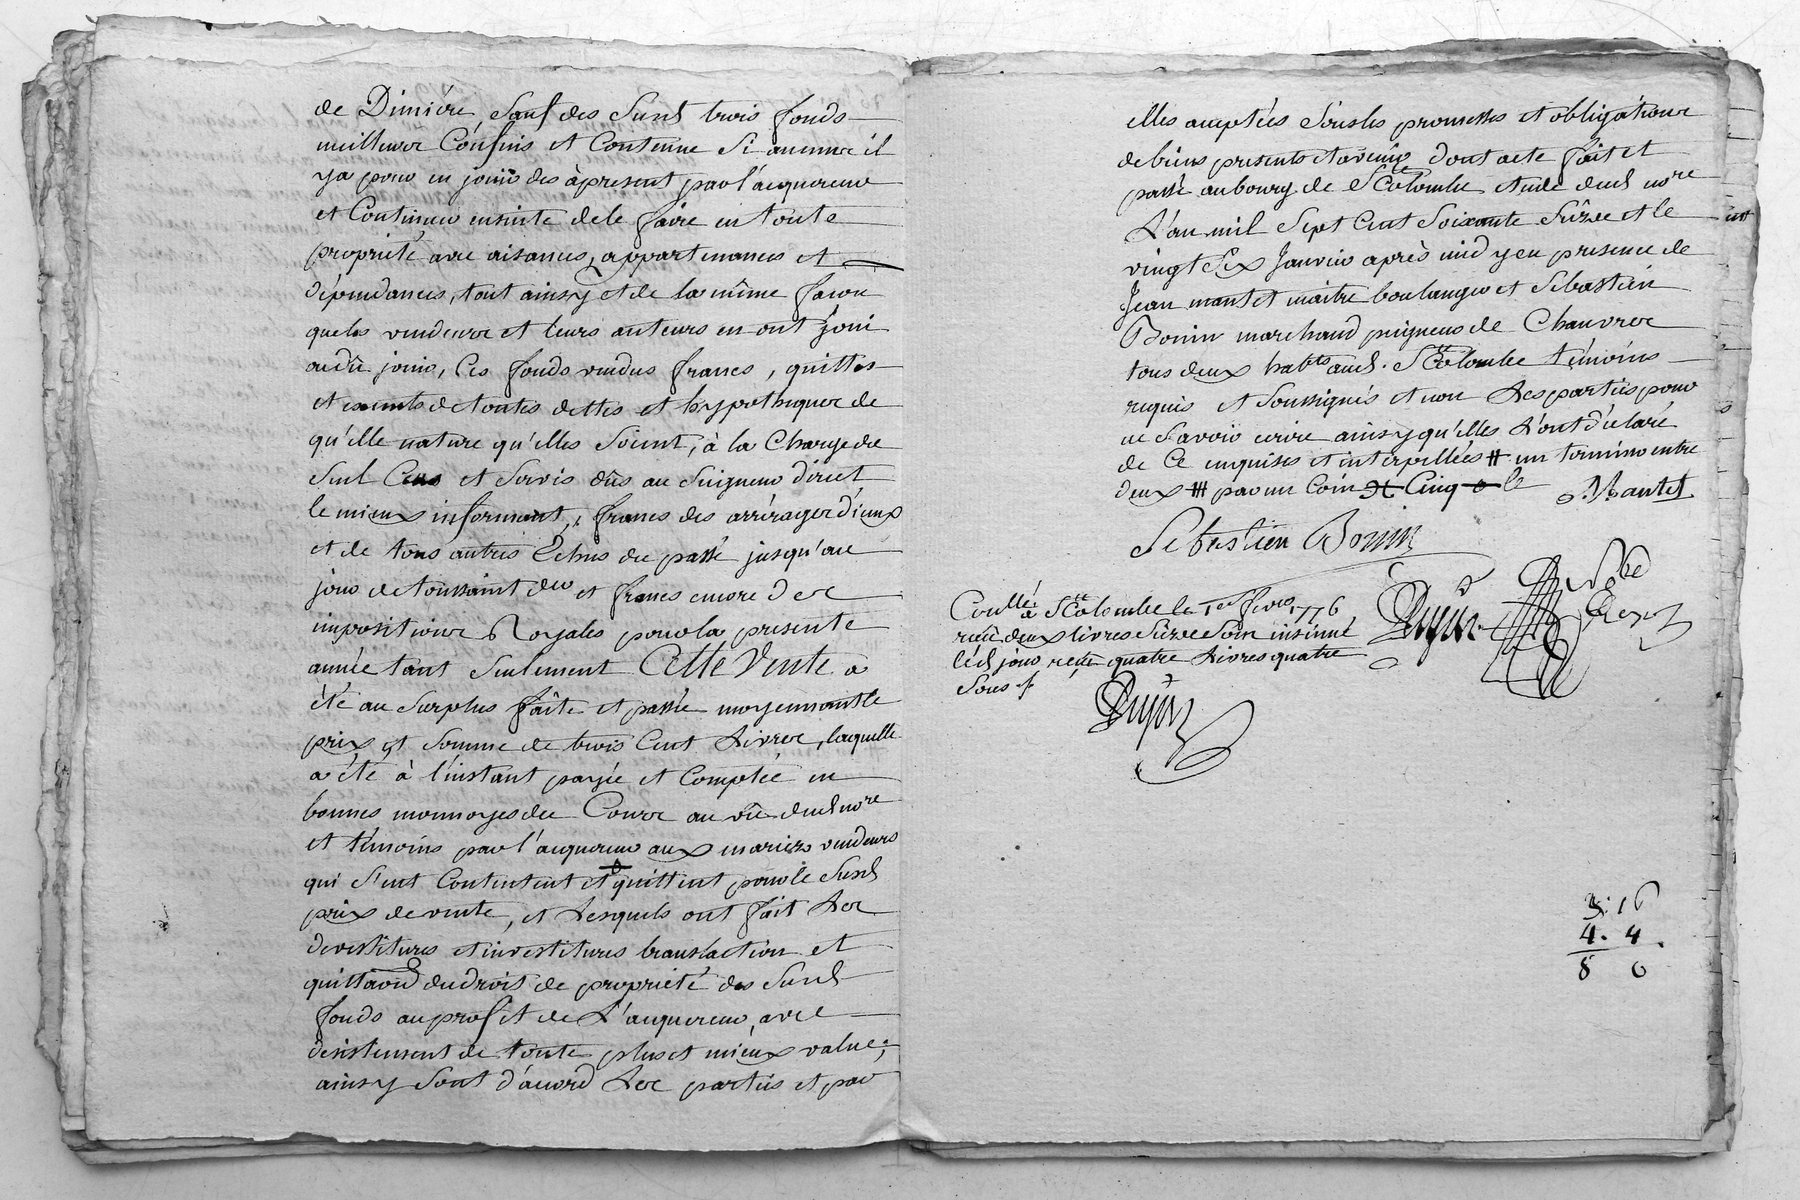 de Diniére, Sauf des Susd trois fonds
meilleurs Confins et Contenue Si aucune il
ya pour en jouir des àpresent par l'acquereur
et Continuer ensuite dele faire en toute
propriété avec aisances, appartenances et
dépendances, tout ainsy et de la même facon
queles vendeurs et leurs auteurs en ont joui
ou dû jouir, Ces fonds vendus francs, quittes
et exempts de toutes dettes et hypotheques de
qu'elle nature qu'elles Soient, à la Charge du
Seul Cens et Servis dûs au Seigneur direct
le mieux informant, francs des arrérages d'iceux
et de tous autres Echus du passé jusqu'au
jour de toussaint der et francs encore des
impositions Royales pour la presente
année tant Seulement Cette Vente a
été au Surplus faite et passée moyennant le
prix et Somme de trois Cent Livres, laquelle
a été à l'instant payée et Comptée en
bonnes monnoyes du Cours au vû dud nore
et témoins par l'acquereur aux mariez vendeurs
qui S'ent Contentent et quittent pour le Susd
prix de vente, et Lesquels ont fait Les
devestitures et investitures translaction et
du droit de propriété des Susd
fonds au profit de L'acquereur, avec
desistement de toute plus et mieux value;
ainsy Sont d'acord Les parties et par
elles acceptées Sous les promesses et obligations
de biens presents et avenir dont acte fait et
passé au bourg de Ste Colombe etude dud nore
L'an mil Sept Cent Soixante Seize et le
vingt Six Janvier après midy en presence de
Jean mantet maitre boulanger et Sebastien
Bonin marchand peigneur de Chanvres
tous deux habts aud. Ste Colombe témoins
requis et Soussignés et non Les parties pour
ne Savoir ecrire ainsy qu'elles L'ont déclaré
de Ce enquises et interpellées # un termino entre
deux # par un Coin Cinq le
J. Mantet
Sebastien Bonin
Conllé à Ste Colombe le 1er fevrer 1776
recû deux livres Seize Sous insinué
led jour reçu quatre Livres quatre
Sous
3: 16
4. 4.
8 0